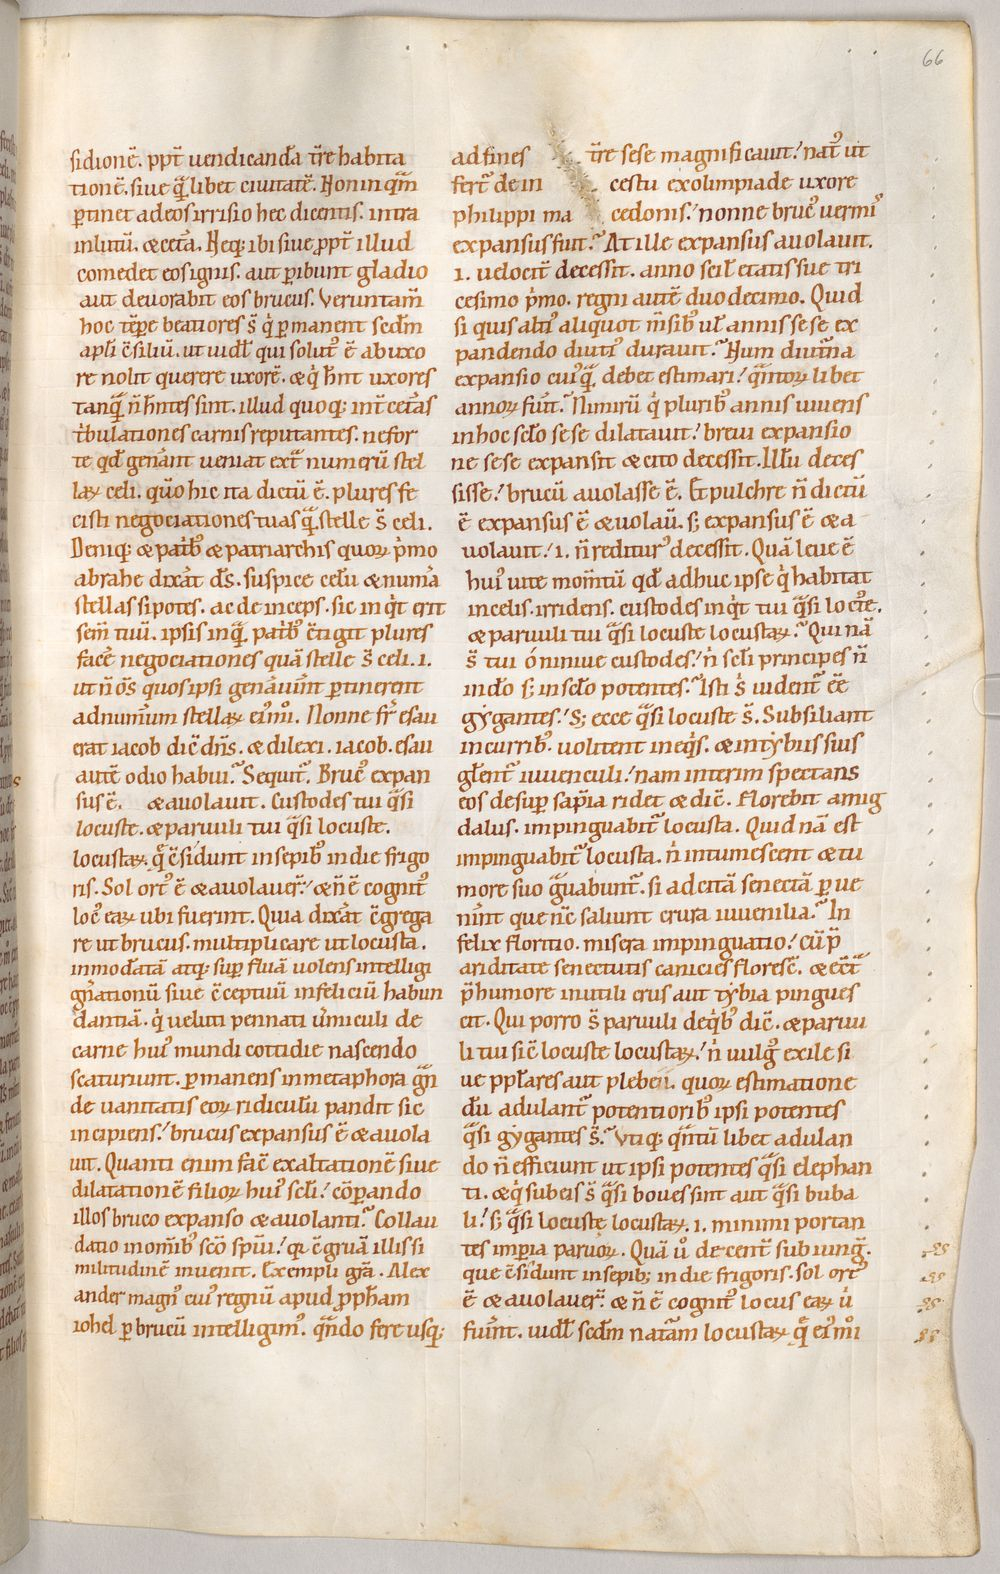 66
sidionē. ꝓpt̄ uendicanda t̄re habita
tionē. siue q̄libet ciuitatē. Non inqm̄
ꝑtinet ad eos irrisio hec dicentis. intra
in lutū. & cet̄a. Neq; ibi siue ꝓpt̄ illud
comedet eos ignis. aut ꝑibunt gladio
aut deuorabit eos brucus. Veruntam̄
hoc tēꝑe beatiores s̄ q̇ ꝑmanent sedm̄
apłi c̄siliū. ut uidł qui solut᾽ ē ab uxo
re nolit querere uxorē. & q̇ hn̄t uxores
tanq̄ n̄ hn̄tes sint. illud quoq; int̄ cet̄as
t̄bulationes carnis reputantes. ne for
te qđ gen̄ant ueniat ext̄ numerū stel
laꝝ celi. qūo hic ita dictū ē. plures fe
cisti negociationes tuas q̄ stelle s̄ celi.
Deniq; & pat̄b᾽ & patriarchis quoꝝ p̄mo
abrahe dix̄at ds̄. suspice celū & num̄a
stellas si potes. ac deinceps. sic inq̇t erit
sem̄ tuū. ipsis inq̄ pat̄b᾽ c̄tigit plures
facē negociationes quā stelle s̄ celi. i.
ut n̄ om̄s quos ipsi gen̄auūnt ꝑtinerent
ad num̄um stellaꝝ ei᾽mōi. Nonne fr̄ esau
erat iacob dic̄ dn̄s. & dilexi. iacob. esau
autē odio habui. Sequit᾽. Bruc᾽ expan
sus ē. & auolauit. Custodes tui q̄si
locuste. & paruuli tui q̄si locuste.
locustaꝝ. q̄ c̄sidunt in sepib᾽ in die frigo
ris. Sol ort᾽ ē & auolauer̄. & n̄ ē cognit᾽
loc᾽ eaꝝ ubi fuerint. Quia dix̄at c̄grega
re ut brucus. multiplicare ut locusta.
inmodatā atq; suꝑfluā uolens intelligi
gn̄ationū siue c̄ceptuū infeliciū habun
dantiā. q̇ ueluti pennati ūmiculi de
carne hui᾽ mundi cottidie nascendo
scaturiunt. ꝑmanens in metaphora gn̄
de uanitatis eoꝝ ridiculū pandit sic
incipiens. brucus expansus ē & auola
uit. Quanti enim facē exaltationē siue
dilatationē filioꝝ hui᾽ scłi. cōꝑando
illos bruco expanso & auolanti. Collau
datio in om̄ib᾽ sc̄o sp̄ui. qi c̄gruā illis si
militudinē inuenit. Exempli gr̄a. Alex
ander magn᾽ cui᾽ regnū apud ꝓpham
iohel ꝑ brucū intelligim᾽. qn̄do fere usq;
ad fines t̄re sese magnificauit. nat᾽ ut
fert᾽ de in cestu ex olimpiade uxore
philippi ma cedonis. nonne bruc᾽ uermi᾽
expansus fuit. At ille expansus auolauit.
i. uelocit̄ decessit. anno scił etatis sue tri
cesimo p̄mo. regni autē duodecimo. Quid
si quis alt̄i᾽ aliquot m̄sib᾽ uł annis sese ex
pandendo diuti᾽ durauit. Num diut̄na
expansio cui᾽q̄ debet estimari. qn̄toꝝlibet
annoꝝ fuit. Nimirū q̇ plurib᾽ annis uiuens
in hoc scło sese dilatauit. breui expansio
ne sese expansit & cito decessit. Illū deces
sisse. brucū auolasse ē. Et pulchre n̄ dictū
ē expansus ē & uolau̇. s; expansus ē & a
uolauit. i. n̄ reditur᾽ decessit. Quā leue ē
hui᾽ uite mom̄tū qđ adhuc ipse q̇ habitat
in celis. irridens. custodes inq̇t tui q̄si locste.
& paruuli tui q̄si locuste locustaꝝ. Qui nā
s̄ tui ó niniue custodes. n̄ scłi principes n̄
in dō s; in scło potentes. Isti s̄ uident᾽ ēē
gẏgantes. S; ecce q̄si locuste s̄. Subsiliant
in currib᾽. uolitent in eq̇s. & in tẏbiis suis
głent᾽ iuuenculi. nam interim spectans
eos desuꝑ sapīa ridet & dic̄. Florebit amig
dalus. impinguabit᾽ locusta. Quid nā est
impinguabit᾽ locusta. n̄ intumescent & tu
more suo g̃uabunt᾽. si ad citā senectā ꝑue
nīnt que nc̄ saliunt crura iuuenilia. In
felix floritio. misera impinguatio. cū p̄
ariditate senectutis canicies floresc̄. & ext̄
p̄ humore inutili crus aut tẏbia pingues
cit. Qui porro s̄ paruuli de q̇b᾽ dic̄. & paruu
li tui sic̄ locuste locustaꝝ. n̄ uulg᾽ exile si
ue ppłares aut plebeii. quoꝝ estimatione
dū adulant᾽ potentiorib᾽ ipsi potentes
q̄si gẏgantes s̄. Vtiq; qn̄tūlibet adulan
do n̄ efficiunt ut ipsi potentes q̄si elephan
ti. & q̇ sub eis s̄ q̄si boues sint aut q̄si buba
li. s; q̄si locuste locustaꝝ. i. minimi portan
tes imꝑia paruoꝝ. Quā ů decent̄ subiung̃.
que c̄sidunt in sepib; in die frigoris. sol ort᾽
ē & auolauer̄. & n̄ ē cognit᾽ locus eaꝝ ů
fuīnt. uidł sedm̄ natam̄ locustaꝝ q̄ ei᾽mōi